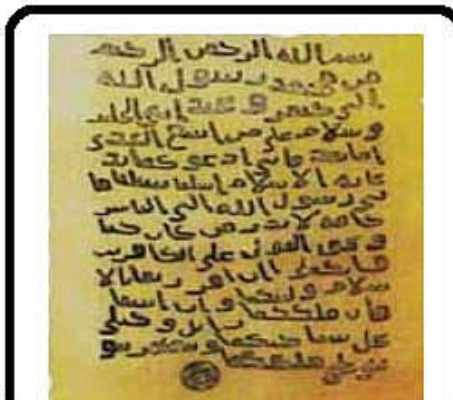 بسم الله الرحمن الرحيم
من محمد رسول الله
الى جيفر و عبد ابني الجلند
و سلام على من اتبع الهدى
اما بعد فاني ادعو كما بد
عاية الاسلام اسلما تسلما فا
ني رسول الله الى الناس
كافة لانذر من كان حيا
و يحق القول على الكافرين
ان اقررتما بالا
سلام وليتكما وان ابيتما
فان ملككما وخيلي
تحل بساحتكما وتظهر نبو
تي على ملككما